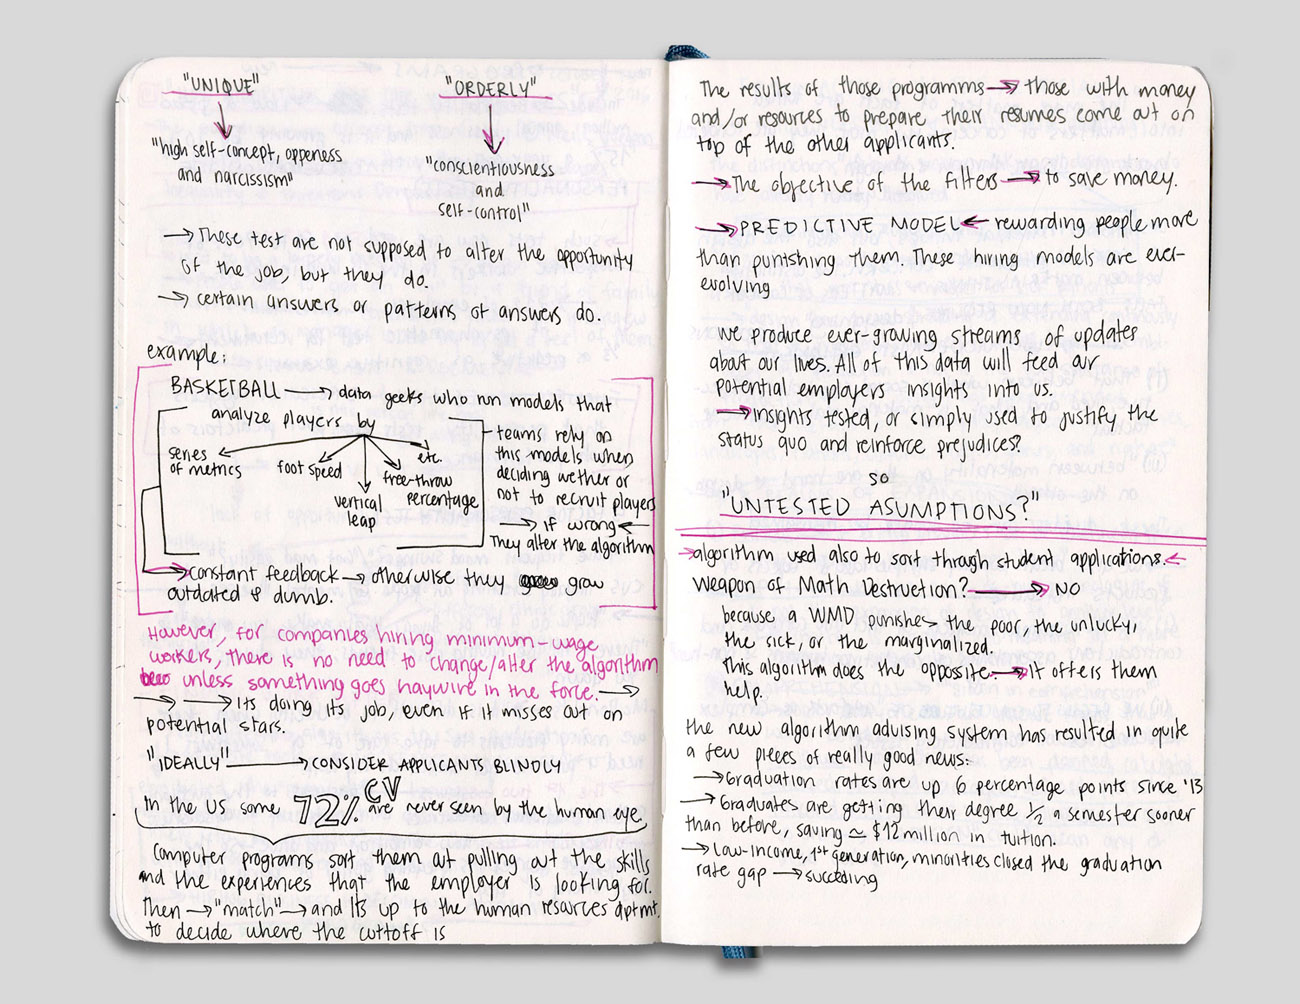 "UNIQUE"
"high self-concept, oppeness
and narcissism"
"ORDERLY"
"conscientiousness
and
self-control"
→ These test are not supposed to alter the opportunity
of the job, but they do.
→ certain answers or patterns of answers do.
example:
BASKETBALL → data geeks who run models that
analyze players by
series
of metrics
foot speed
vertical
leap
free-throw
percentage
etc.
teams rely on
this models when
deciding wether or
not to recruit players
→ if wrong ←
They alter the algorithm
→ constant feedback → otherwise they grow
outdated & dumb.
However, for companies hiring minimum-wage
workers, there is no need to change/alter the algorithm
unless something goes haywire in the force. →
→ → Its doing its job, even if it misses out on
potential stars.
"IDEALLY" → CONSIDER APPLICANTS BLINDLY
In the US some 72% CV are never seen by the human eye.
Computer programs sort them out pulling out the skills
and the experiences that the employer is looking for.
Then → "match" → and Its up to the human resources dptmt.
to decide where the cuttoff is
The results of those programms → those with money
and/or resources to prepare their resumes come out on
top of the other applicants.
→ The objective of the filters → to save money.
→ PREDICTIVE MODEL ← rewarding people more
than punishing them. These hiring models are ever-
evolving
we produce ever-growing streams of updates
about our lives. All of this data will feed our
potential employers insights into us.
→ Insights tested, or simply used to justify the
status quo and reinforce prejudices?
so
"UNTESTED ASUMPTIONS?"
→ algorithm used also to sort through student applications. ←
Weapon of Math Destruction? → NO
because a WMD punishes the poor, the unlucky,
the sick, or the marginalized.
This algorithm does the opposite → It offers them
help.
the new algorithm advising system has resulted in quite
a few pieces of really good news:
→ Graduation rates are up 6 percentage points since '13
→ Graduates are getting their degree 1/2 a semester sooner
than before, saving ≃ $12 million in tuition.
→ Low-income, 1st generation, minorities closed the graduation
rate gap → succeding